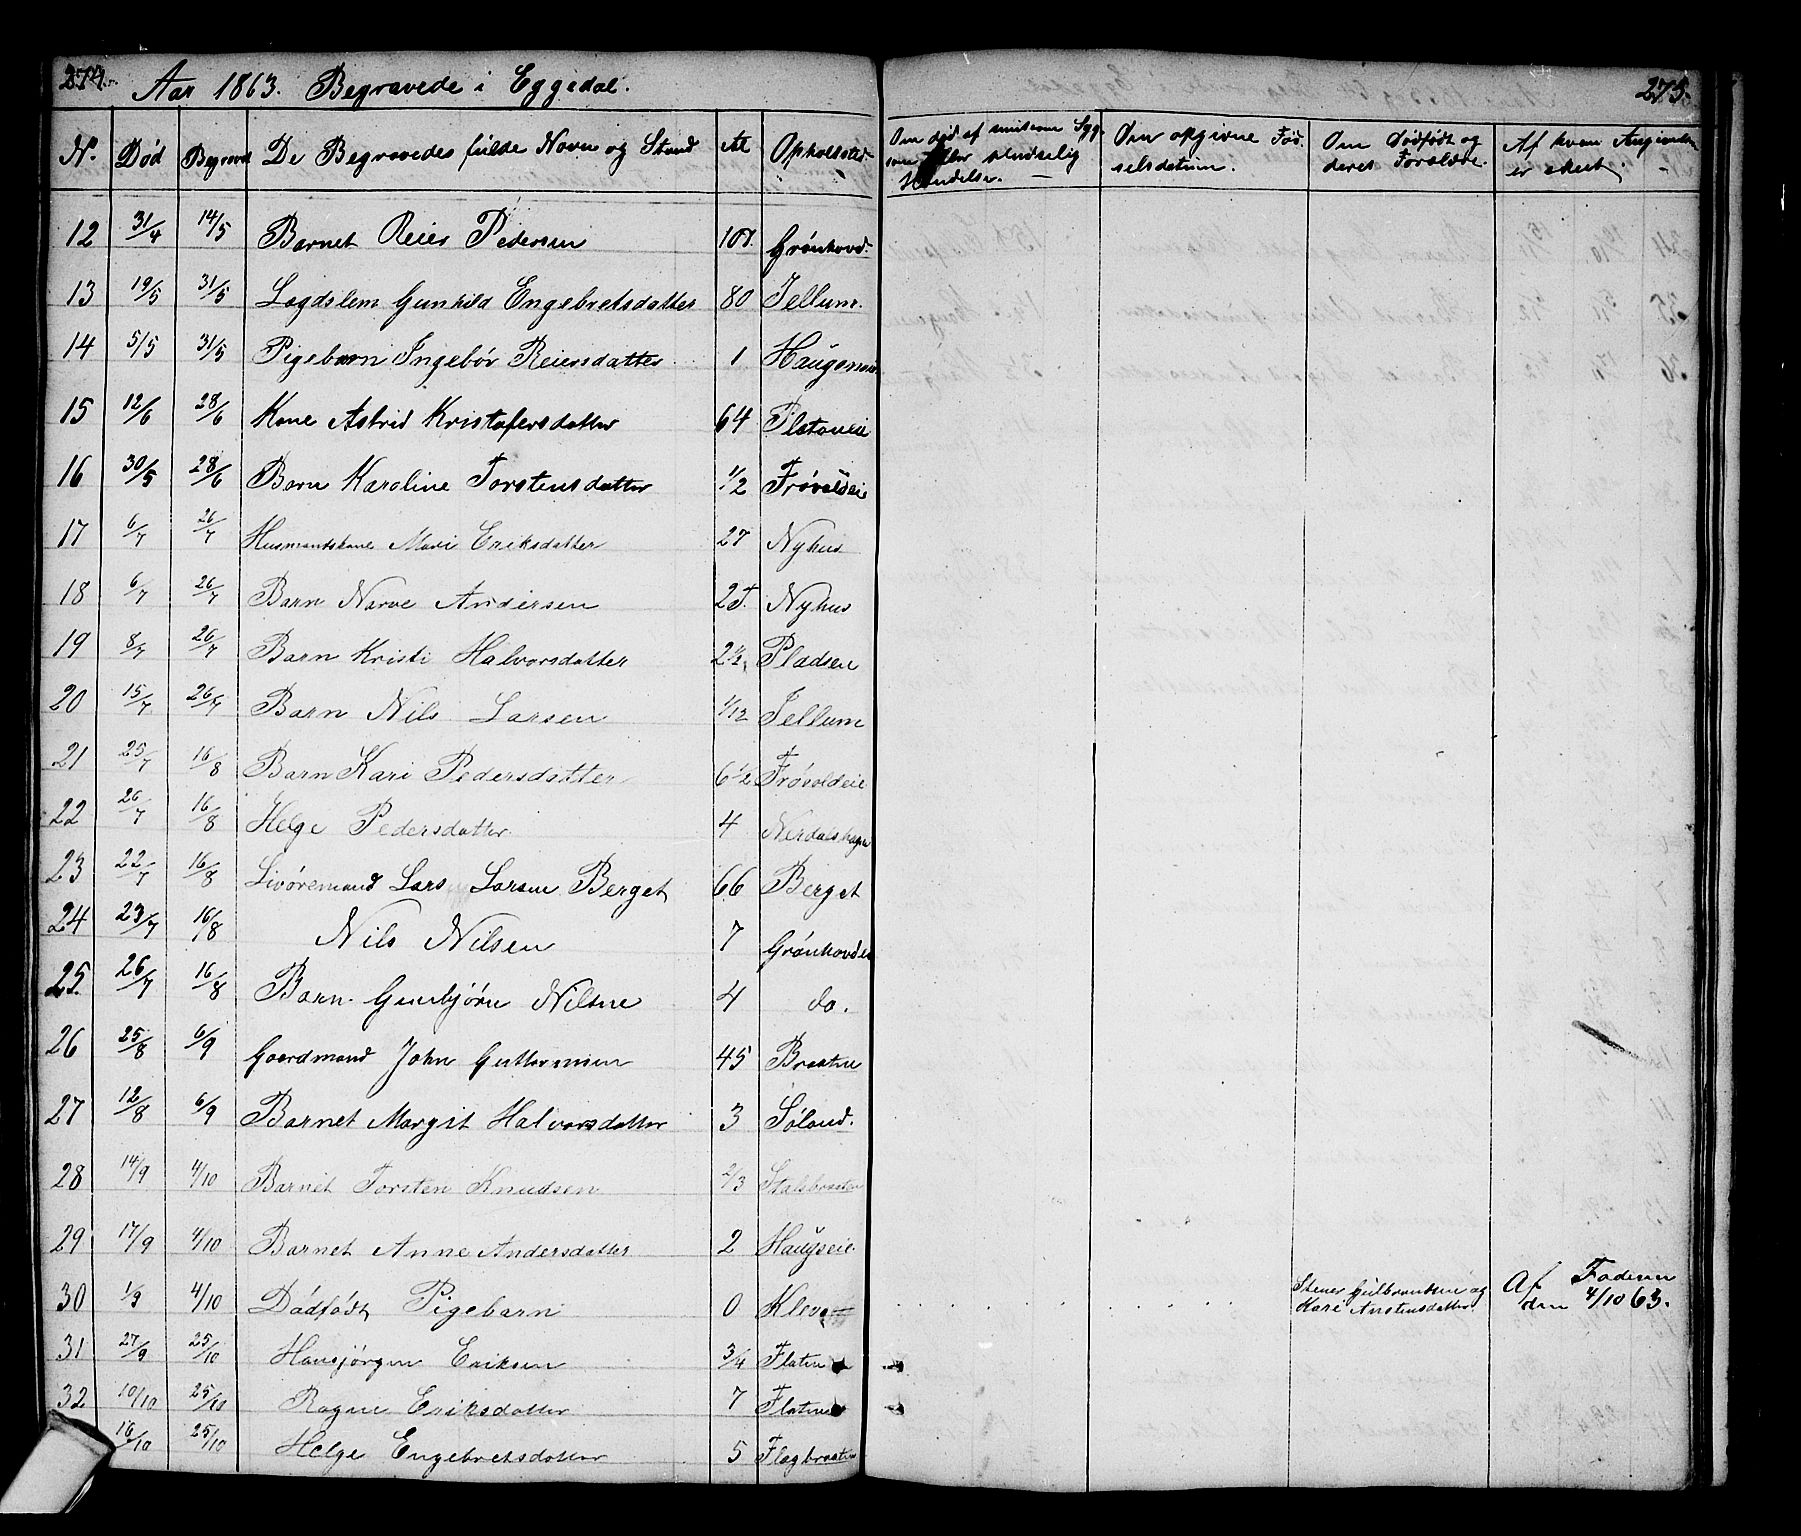 274. Aar 1863. Begravede i Eggedal. 275.
N. Død Begravd De Begravedes fulde Navn og Stand Al Opholdssted Om død af smitsom Syg- Den opgivne Fød- Om Dødfødt og Af hvem Anmeldn
som eller ulykkelig selsdatum. deres Forældre. er skeet.
Hændelse. —
12 31/4 14/5 Barnet Reier Pedersen Grønhovd.
13 19/5 31/5 Lægdslem Gunhild Engebretsdatter 80 Jellum.
14 5/5 31/5 Pigebarn Ingebør Reiersdatter 1
15 12/6 28/6 Kone Astrid Kristofersdatter 64 Flataneie
16 30/5 28/6 Barn Karoline Torstensdatter 1/2 Frøvoldeie
17 6/7 26/7 Husmandskone Mari Eriksdatter 27 Nyhus
18 6/7 26/7 Barn Narve Andersen 2T. Nyhus
19 8/7 26/7 Barn Kristi Halvorsdatter 2 1/2 Pladsen
20 15/7 26/7 Barn Nils Larsen 1/12 Jellum
21 25/7 16/8 Barn Kari Pedersdatter 6 1/2 Frøvoldeie
22 26/7 16/8 Helge Pedersdatter 4 Nerdalshagen
23 22/7 16/8 Livøremand Lars Larsen Berget 66 Berget
24 23/7 16/8 Nils Nilsen 7 Grønhovdei
25. 26/7 16/8 Barn Gunbjørn Nilsne 4 do.
26 25/8 6/9 Gaardmand John Guttormsen 45 Braatne
27 12/8 6/9 Barnet Margit Halvorsdatter 3 Søland.
28 14/9 4/10 Barnet Torsten Knudsen 2/3 Stalsbraaten
29 17/9 4/10 Barnet Anne Andersdatter 2 Haugseie
30 1/9 4/10 Dødfødt Pigebarn 0 Kleva Stener Gulbrandsen og Af Faderen
Kari Anstensdatter den 4/10 63.
31 27/9 25/10 Hansjørgen Eriksen 3/4 Flatne
32 10/10 25/10 Ragne Eriksdatter 7 Flatne
16/10 25/10 Helge Engebretsdatter 5 Flagbraaten